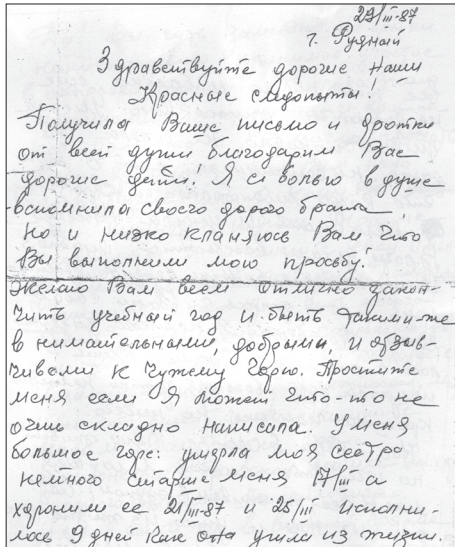 27/III-87
г. Рудный
Здравствуйте дорогие Наши
Красные следопыты!
Получила Ваше письмо и фотки
от всей души благодарим Вас
дорогие дети! Я с болью в душе
вспомнила своего дорого брата
Но и низко кланяюсь Вам что
Вы выполнили мою просьбу!
Желаю Вам всем отлично закон-
чить учебный год и быть такими-же
внимательными, добрыми, и отзыв-
чивами к чужему горю. Простите
меня если Я может что-то не
очень складно написала. У меня
большое горе: умерла моя сестра
немного старше меня 17/III а
хоронили ее 21/III-87 и 25/III исполни-
лось 9 дней как она ушла из жизни.